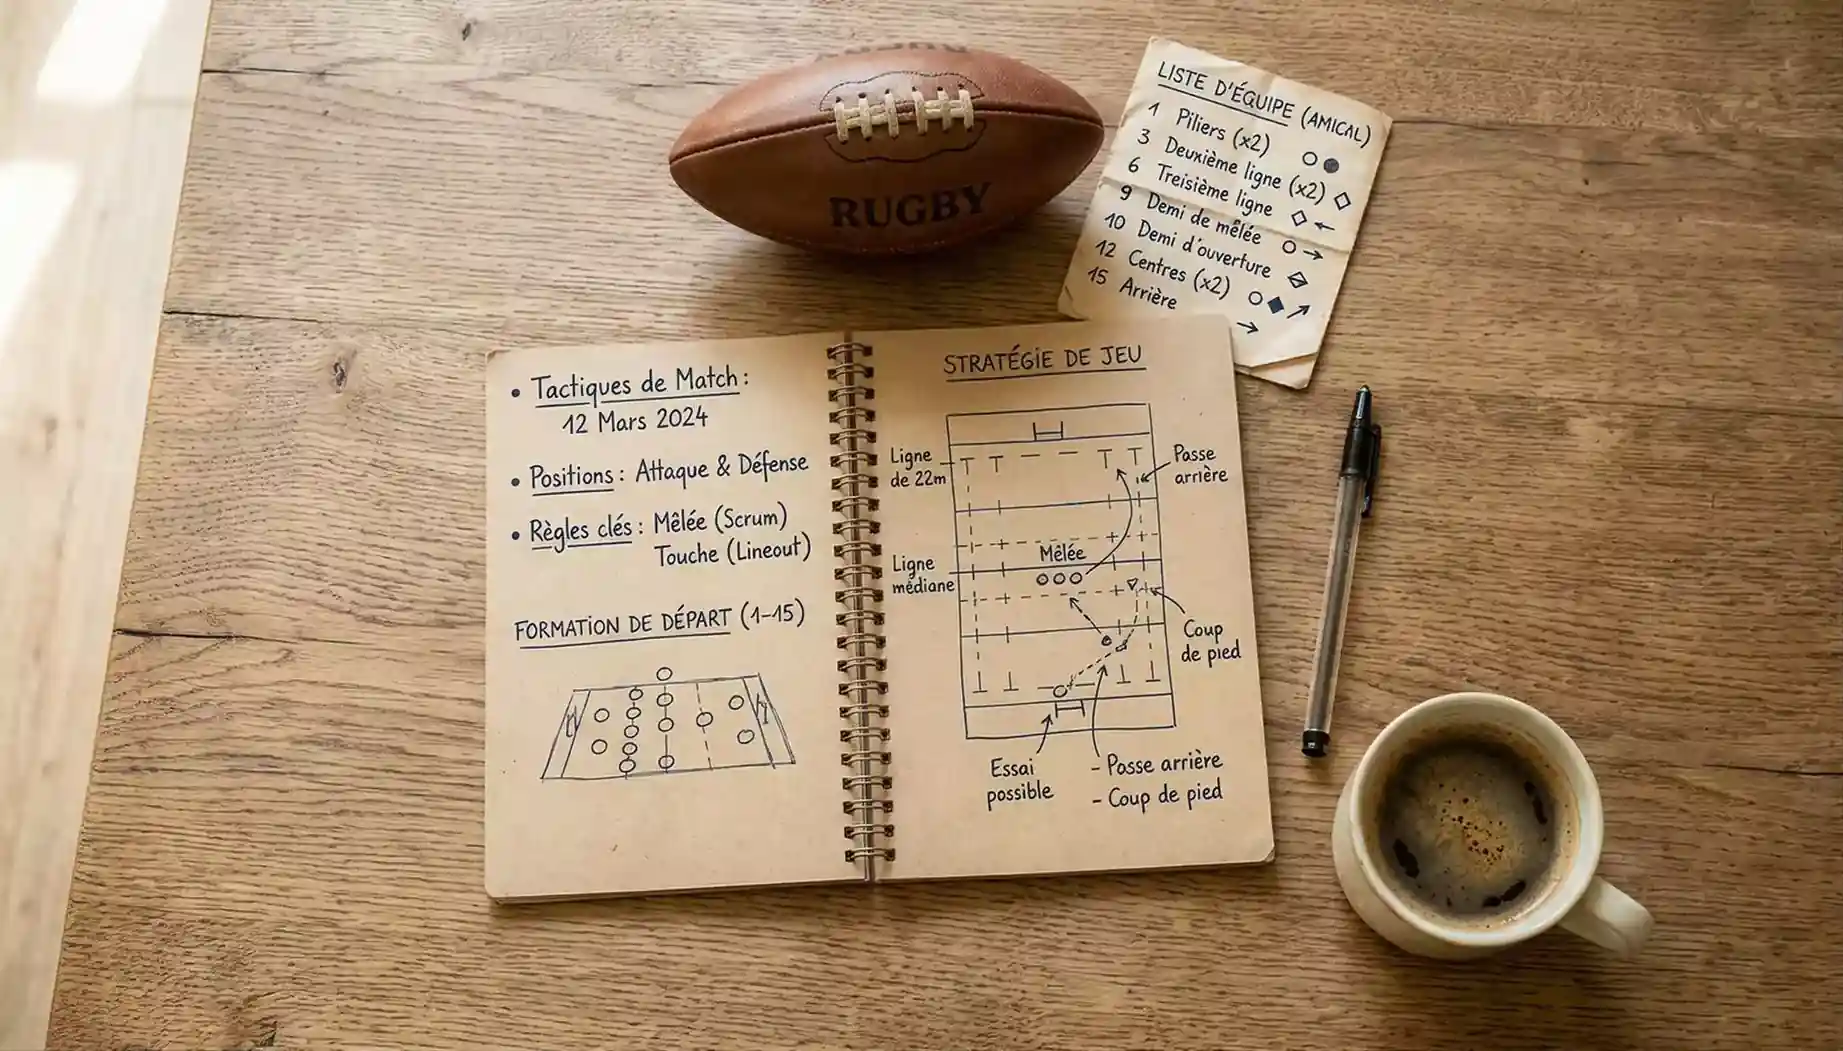 RUGBY
LISTE D'ÉQUIPE (AMICAL)
1 Piliers (x2)
3 Deuxième ligne (x2)
6 Treisième ligne
9 Demi de mêlée
10 Demi d'ouverture
12 Centres (x2)
15 Arrière
• Tactiques de Match :
12 Mars 2024
• Positions : Attaque & Défense
• Règles clés : Mêlée (Scrum)
Touche (Lineout)
FORMATION DE DÉPART (1-15)
STRATÉGIE DE JEU
Ligne
de 22m
Passe
arrière
Mêlée
Ligne
médiane
Coup
de pied
Essai
possible
- Passe arrière
- Coup de pied